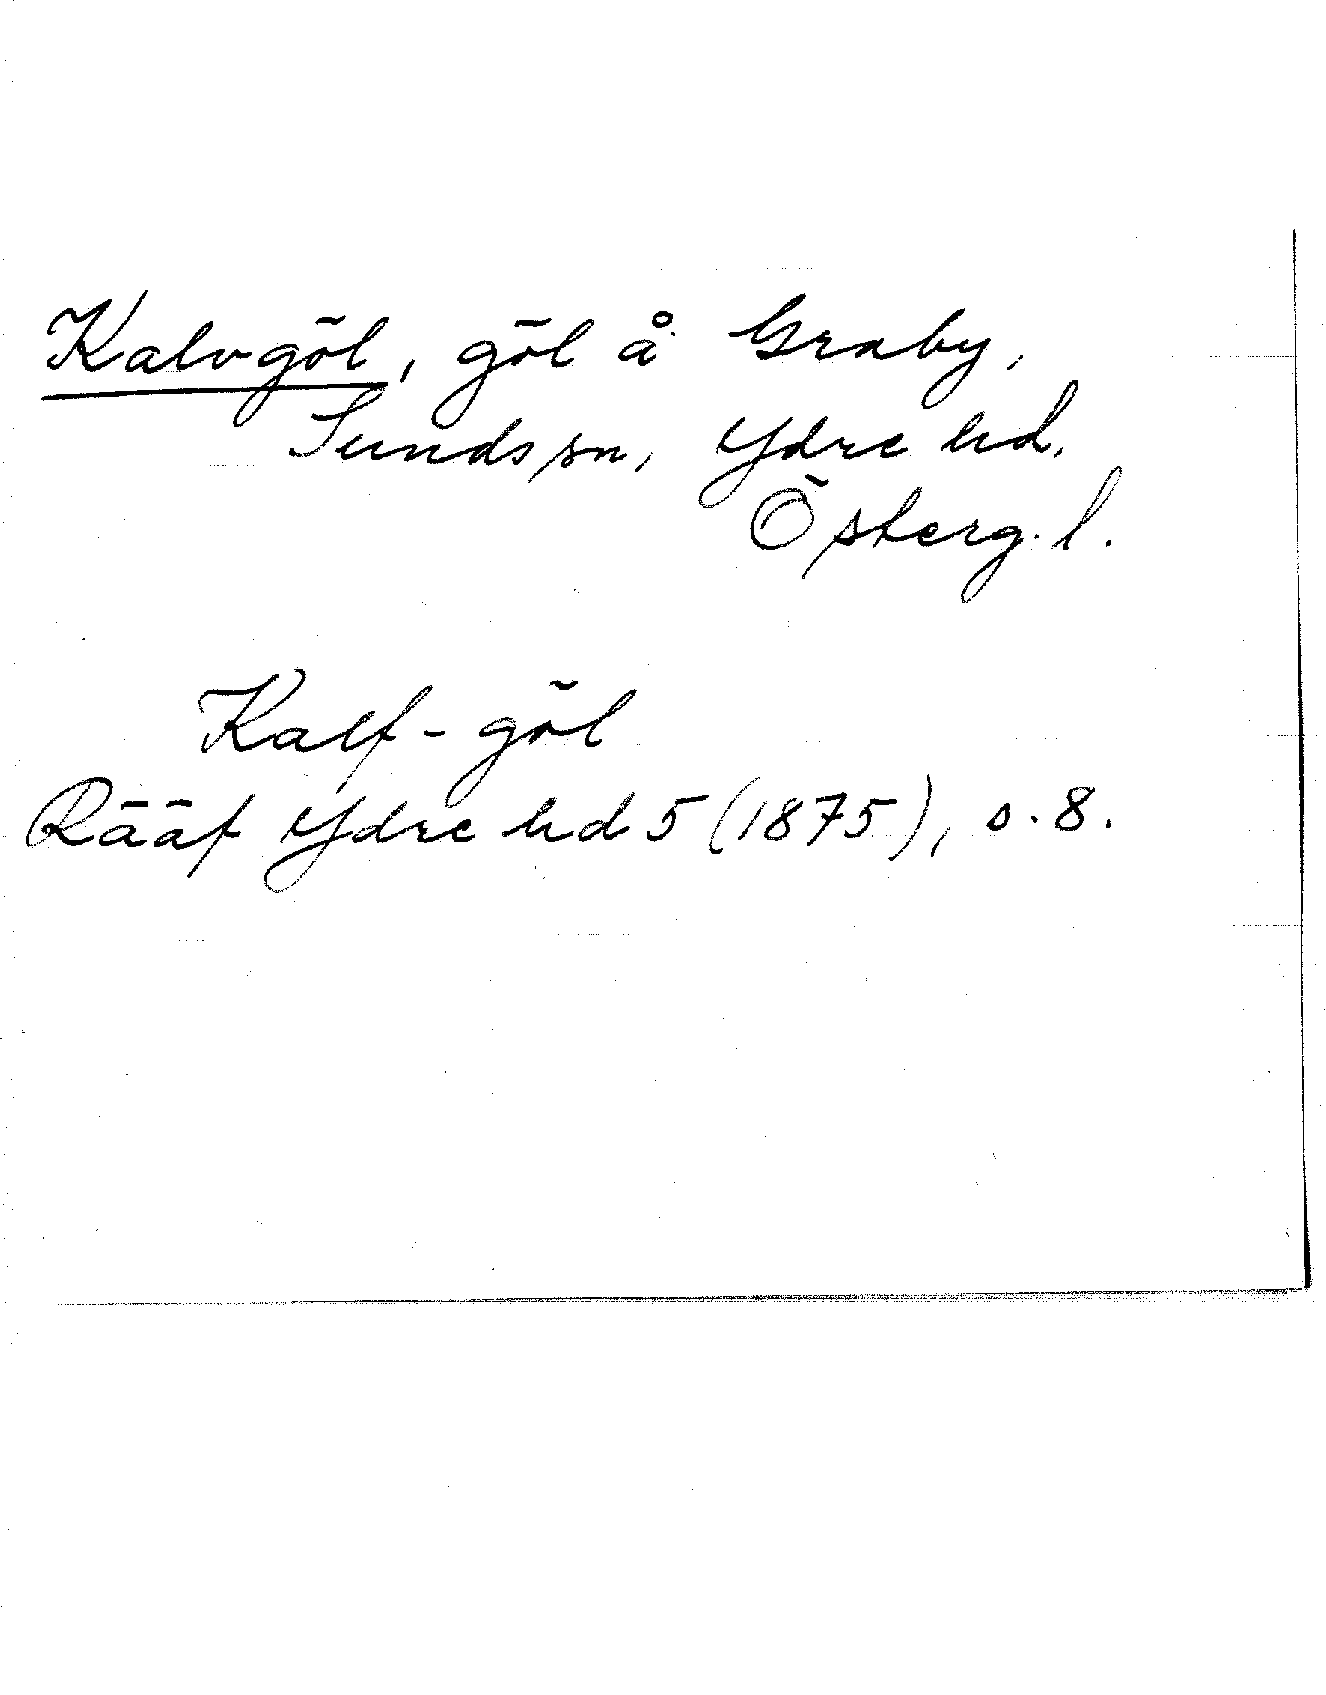 Kalvgöl, göl å Graby,
Sunds sn, Ydre hd,
Österg. l.
Kalf-göl
Rääf Ydre hd 5 (1875), s. 8.